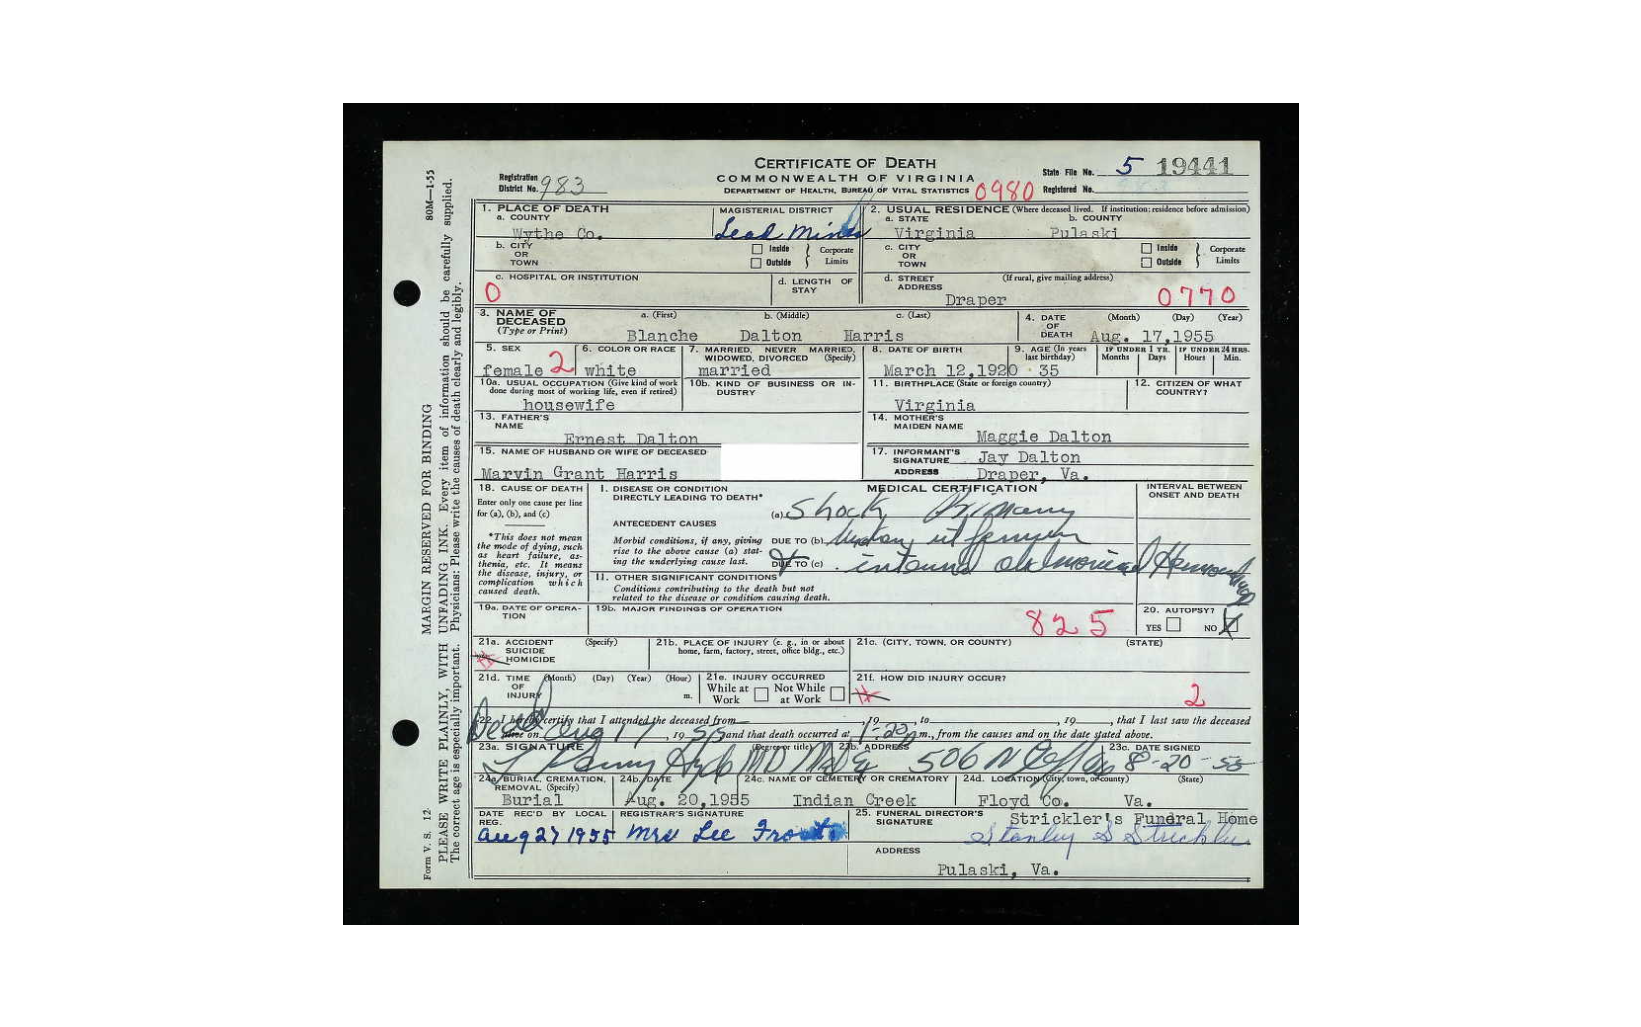 CERTIFICATE OF DEATH
COMMONWEALTH OF VIRGINIA
DEPARTMENT OF HEALTH, BUREAU OF VITAL STATISTICS 0980
Registration District No. 983
State File No. 5 19441
Registered No.
80M—1-55
Form V. S. 12
MARGIN RESERVED FOR BINDING
PLEASE WRITE PLAINLY, WITH UNFADING INK. Every item of information should be carefully supplied.
The correct age is especially important. Physicians: Please write the causes of death clearly and legibly.
1. PLACE OF DEATH
a. COUNTY
Wythe Co.
MAGISTERIAL DISTRICT
Lead Mines
2. USUAL RESIDENCE (Where deceased lived. If institution: residence before admission)
a. STATE b. COUNTY
Virginia Pulaski
b. CITY OR TOWN
Inside Outside Corporate Limits
c. CITY OR TOWN
Inside Outside Corporate Limits
c. HOSPITAL OR INSTITUTION
0
d. LENGTH OF STAY
d. STREET ADDRESS (If rural, give mailing address)
Draper 0770
3. NAME OF DECEASED (Type or Print)
a. (First) b. (Middle) c. (Last)
Blanche Dalton Harris
4. DATE OF DEATH (Month) (Day) (Year)
Aug. 17,1955
5. SEX
female 2
6. COLOR OR RACE
white
7. MARRIED, NEVER MARRIED, WIDOWED, DIVORCED (Specify)
married
8. DATE OF BIRTH
March 12,1920
9. AGE (In years last birthday)
35
IF UNDER 1 YR. Months Days
IF UNDER 24 HRS. Hours Min.
10a. USUAL OCCUPATION (Give kind of work done during most of working life, even if retired)
housewife
10b. KIND OF BUSINESS OR INDUSTRY
11. BIRTHPLACE (State or foreign country)
Virginia
12. CITIZEN OF WHAT COUNTRY?
13. FATHER'S NAME
Ernest Dalton
14. MOTHER'S MAIDEN NAME
Maggie Dalton
15. NAME OF HUSBAND OR WIFE OF DECEASED
Marvin Grant Harris
17. INFORMANT'S SIGNATURE Jay Dalton
ADDRESS Draper, Va.
18. CAUSE OF DEATH
Enter only one cause per line for (a), (b), and (c)
*This does not mean the mode of dying, such as heart failure, asthenia, etc. It means the disease, injury, or complication which caused death.
MEDICAL CERTIFICATION
INTERVAL BETWEEN ONSET AND DEATH
I. DISEASE OR CONDITION DIRECTLY LEADING TO DEATH*
(a) Shock
ANTECEDENT CAUSES
Morbid conditions, if any, giving rise to the above cause (a) stating the underlying cause last.
DUE TO (b)
DUE TO (c)
II. OTHER SIGNIFICANT CONDITIONS
Conditions contributing to the death but not related to the disease or condition causing death.
19a. DATE OF OPERATION
19b. MAJOR FINDINGS OF OPERATION
825
20. AUTOPSY?
YES NO X
21a. ACCIDENT SUICIDE HOMICIDE (Specify)
21b. PLACE OF INJURY (e. g., in or about home, farm, factory, street, office bldg., etc.)
21c. (CITY, TOWN, OR COUNTY) (STATE)
21d. TIME OF INJURY (Month) (Day) (Year) (Hour) m.
21e. INJURY OCCURRED
While at Work Not While at Work
21f. HOW DID INJURY OCCUR?
2
22. I hereby certify that I attended the deceased from , 19 , to , 19 , that I last saw the deceased
Dead
on Aug 17, 1955 and that death occurred at m., from the causes and on the date stated above.
23a. SIGNATURE (Degree or title)
MD
23b. ADDRESS
506 N
23c. DATE SIGNED
8-20-55
24a. BURIAL, CREMATION, REMOVAL (Specify)
Burial
24b. DATE
Aug. 20,1955
24c. NAME OF CEMETERY OR CREMATORY
Indian Creek
24d. LOCATION (City, town, or county) (State)
Floyd Co. Va.
DATE REC'D BY LOCAL REG.
Aug 27 1955
REGISTRAR'S SIGNATURE
Mrs Lee
25. FUNERAL DIRECTOR'S SIGNATURE
Strickler's Funeral Home
Stanley S Strickler
ADDRESS
Pulaski, Va.